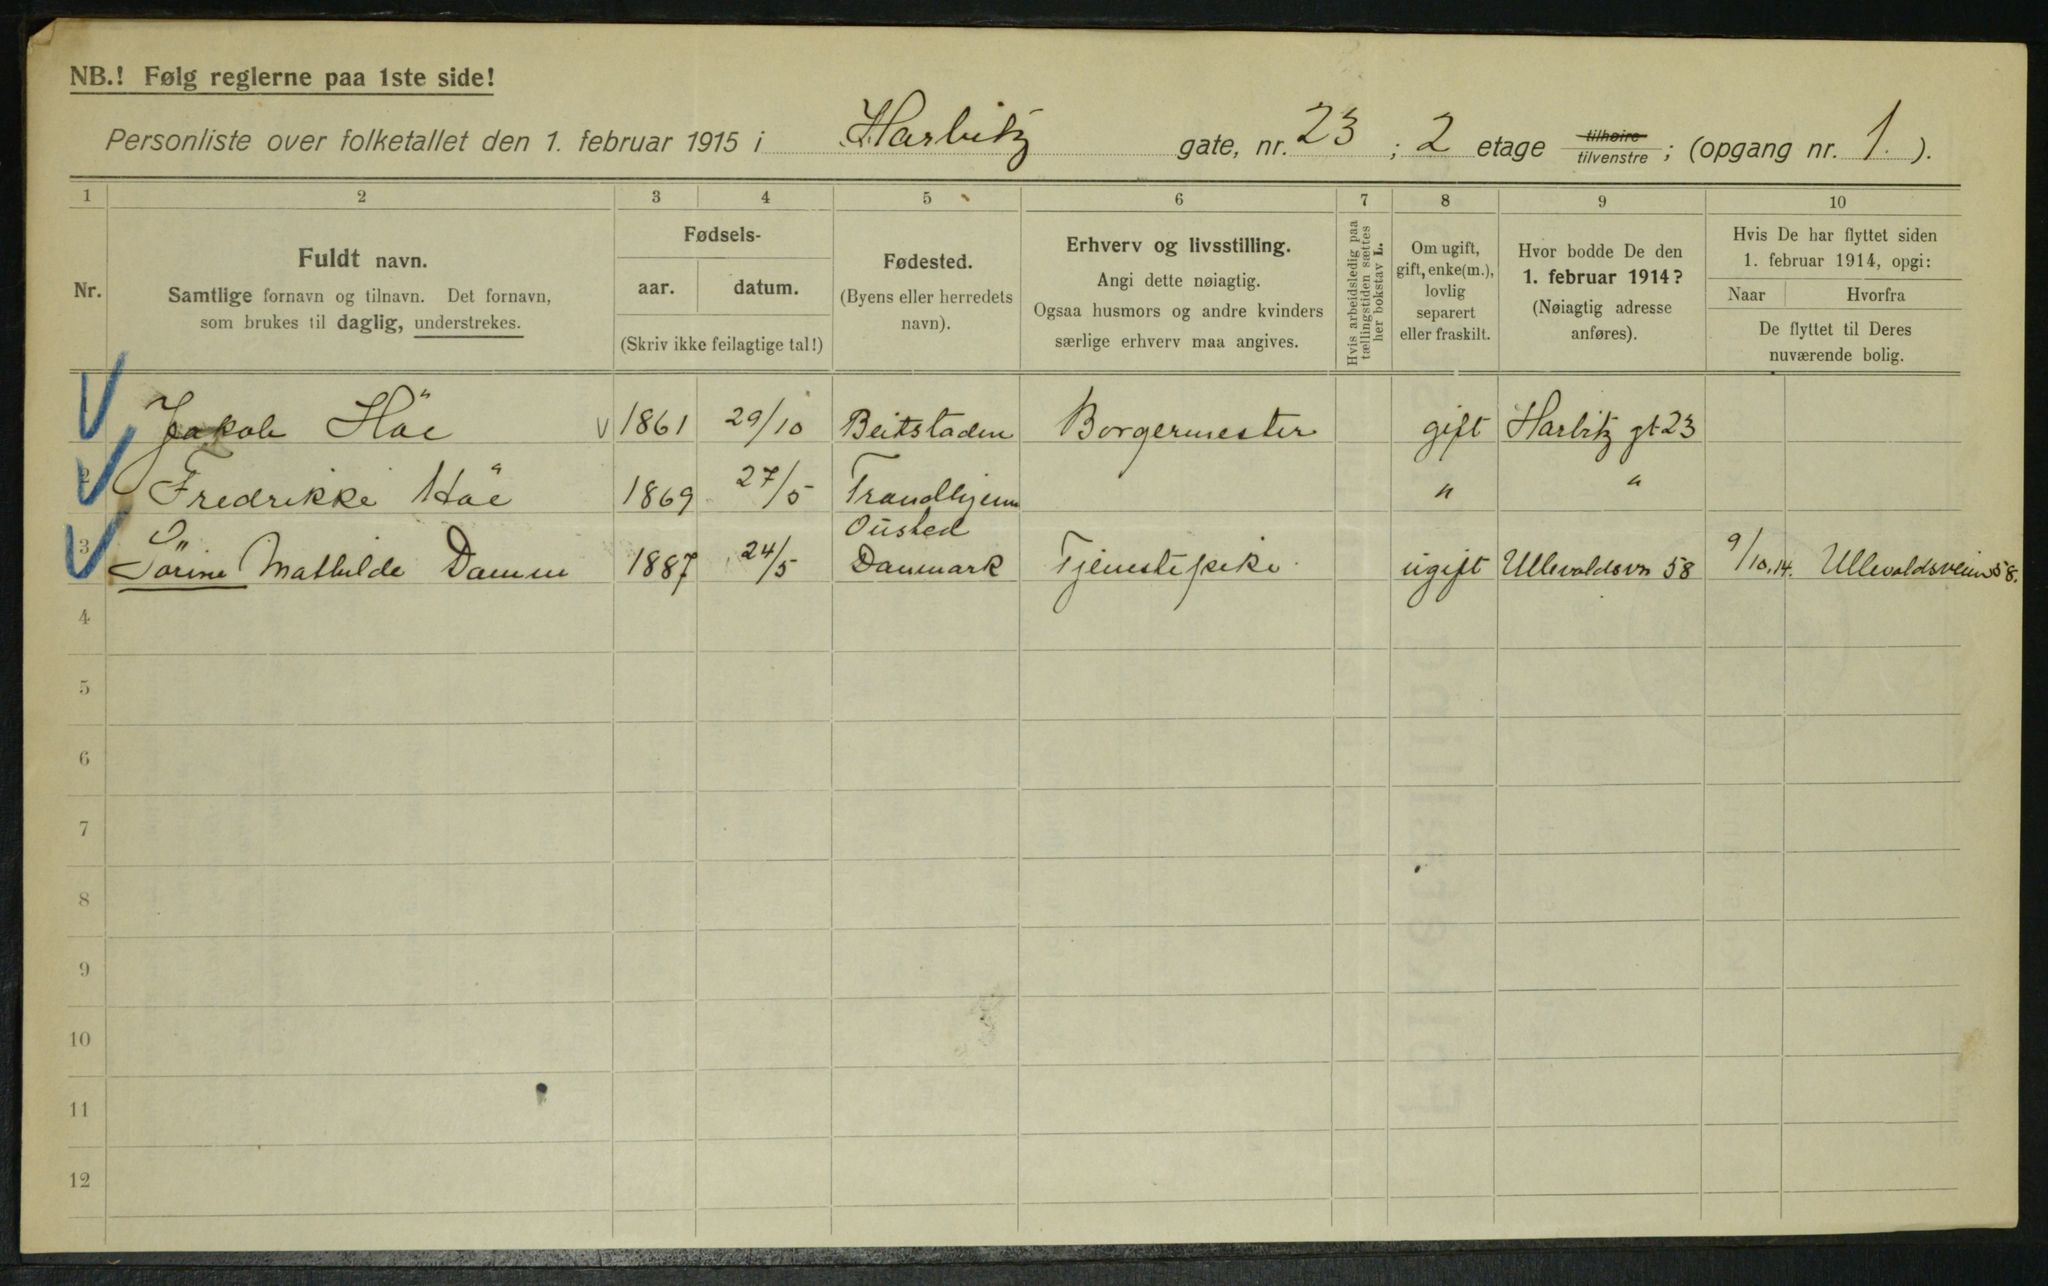 NB.! Følg reglerne paa 1ste side!
Personliste over folketallet den 1. februar 1915 i Harbitz gate, nr. 23 ; 2 etage tilhøire tilvenstre ; (opgang nr. 1. ).
1 2 3 4 5 6 7 8 9 10
Nr.
Fuldt navn.
Samtlige fornavn og tilnavn. Det fornavn,
som brukes til daglig, understrekes.
Fødsels-
aar. datum.
(Skriv ikke feilagtige tal!)
Fødested.
(Byens eller herredets
navn).
Erhverv og livsstilling.
Angi dette nøiagtig.
Ogsaa husmors og andre kvinders
særlige erhverv maa angives.
Hvis arbeidsledig paa
tællingstiden sættes
her bokstav L.
Om ugift,
gift, enke(m.),
lovlig
separert
eller fraskilt.
Hvor bodde De den
1. februar 1914?
(Nøiagtig adresse
anføres).
Hvis De har flyttet siden
1. februar 1914, opgi:
Naar Hvorfra
De flyttet til Deres
nuværende bolig.
Jakob Höe 1861 29/10 Beitstaden Borgermester gift Harbitz gt 23
2 Fredrikke Höe 1869 27/5 Trondhjem " "
Ousted
3 Sörine Mathilde Damm 1887 24/5 Danmark Tjenestepike ugift Ullevoldsvn 58 9/10.14. Ullevoldsveien 58.
4
5
6
7
8
9
10
11
12